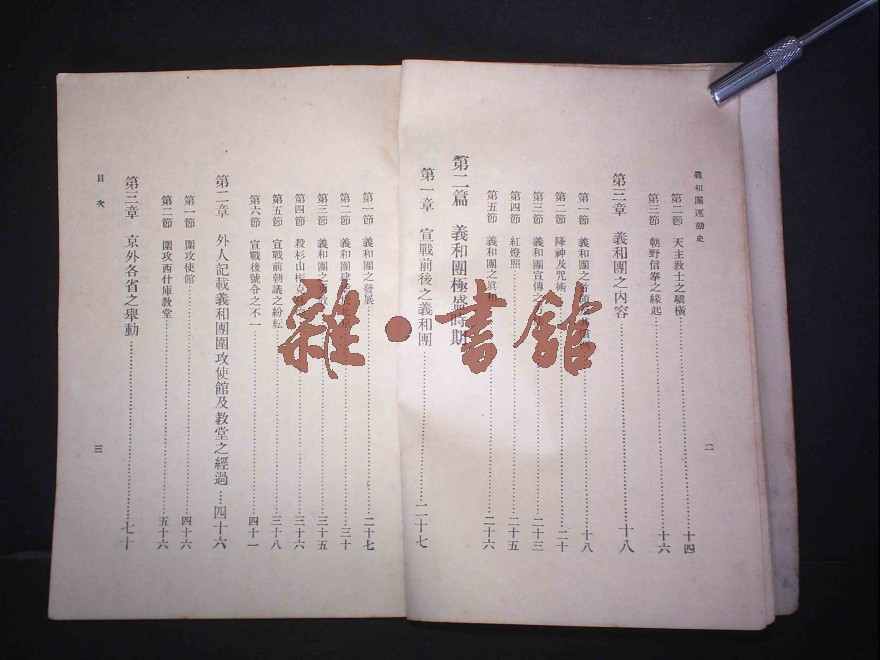 義和團運動史
第二節 天主教士之驕橫 十四
第三節 朝野信拳之緣起 十六
第三章 義和團之內容 十八
第一節 義和團之 十八
第二節 降神及咒術 二十
第三節 義和團宣傳之方 二十三
第四節 紅燈照 二十五
第五節 義和團之眞相 二十六
第二篇 義和團極盛時期
第一章 宣戰前後之義和團 二十七
二
第一節 義和團之發展 二十七
第二節 義和團 三十
第三節 義和團之 三十五
第四節 殺杉山彬 三十六
第五節 宣戰前朝議之紛紜 三十八
第六節 宣戰後號令之不一 四十一
第二章 外人記載義和團圍攻使館及教堂之經過 四十六
第一節 圍攻使館 四十六
第二節 圍攻西什庫教堂 五十六
第三章 京外各省之舉動 七十
目次
三
雜·書館